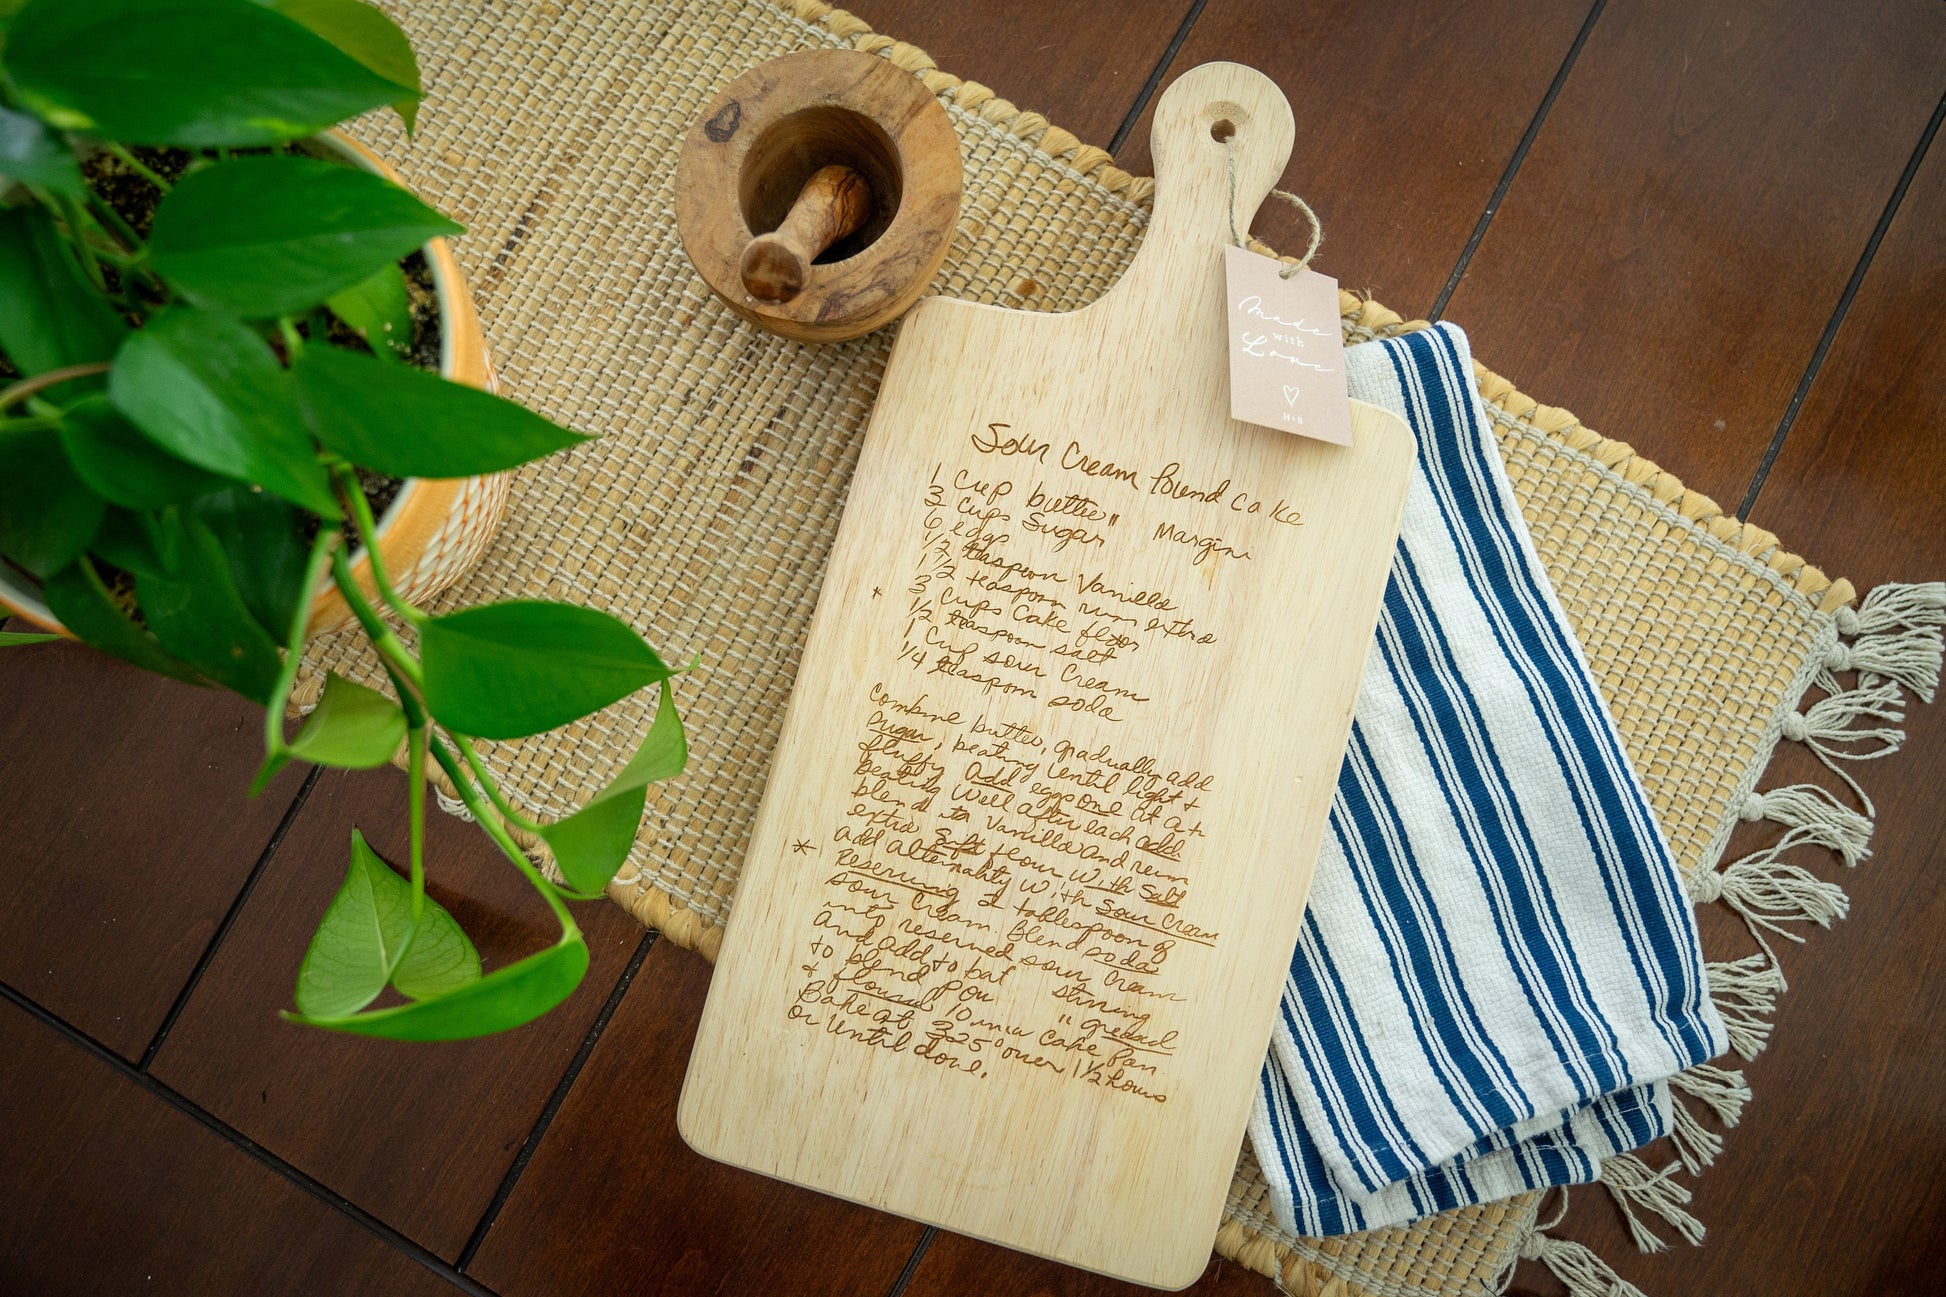 Made
with
Love
H+B
Sour Cream Pound Cake
1 Cup butter " Margine
3 Cups Sugar
6 eggs
1/2 teaspoon Vanilla
1/2 teaspoon rum extra
* 3 Cups Cake flor
1/2 teaspoon salt
1 Cup sour Cream
1/4 teaspoon soda
Combine butter, gradually add
Sugar, beating until light +
fluffy Add eggs one at a t
beating well after each add.
blend Vanilla and rum
extra Sift flour with Salt
* add alternality with Sour Cream
Reserving 2 tablespoon of
sour Cream. Blend soda
into reserved sour Cream
and add to bat stirring
to blend Pou " greased
+ floused 10 inch Cake Pan.
Bake at 325° over 1 1/2 hours
or until done.